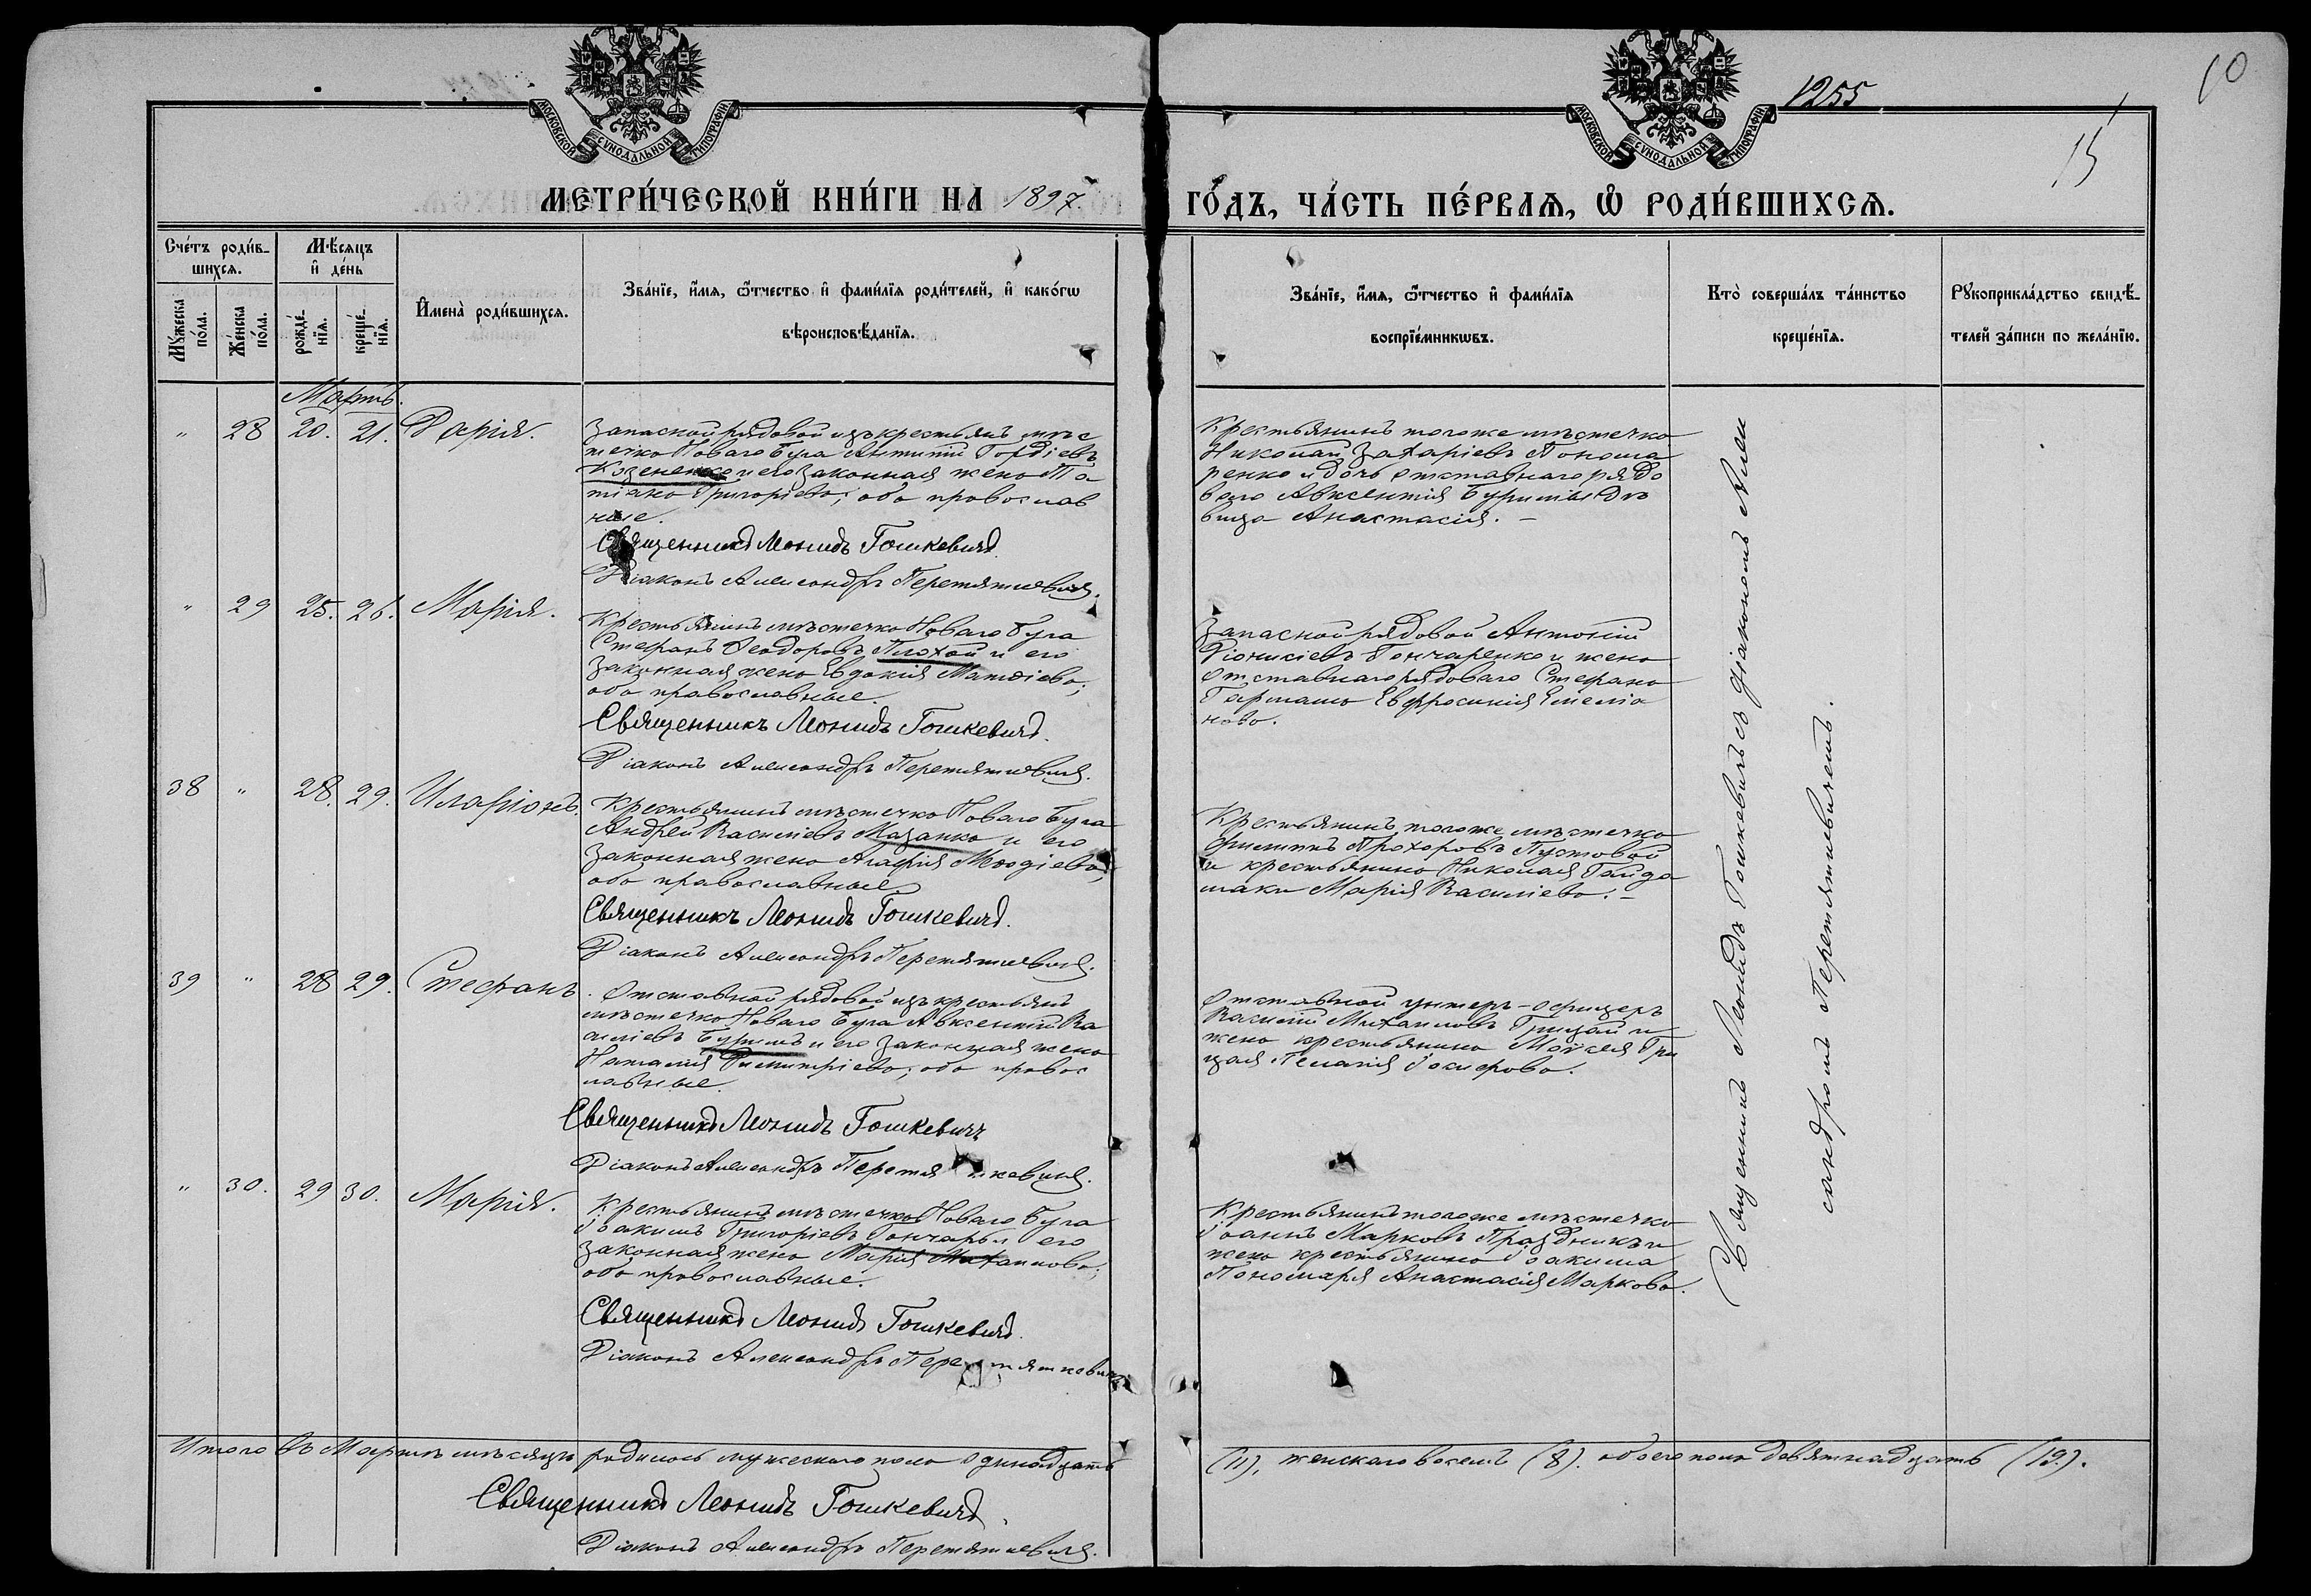 1255
10
15
МОСКОВСКОЙ СѴНОДАЛЬНОЙ ТИПОГРАФІИ
МОСКОВСКОЙ СѴНОДАЛЬНОЙ ТИПОГРАФІИ
МЕТРИ́ЧЕСКОЙ КНИ́ГИ НА 1897
ГО́ДЪ, ЧА́СТЬ ПЕ́РВАѦ, Ѡ РОДИ́ВШИХСѦ.
Сче́тъ роди́в-
шихсѧ.
Мꙋ́жеска
по́ла.
Же́нска
по́ла.
Мѣ́сѧцъ
и҆ де́нь
рожде́-
нїѧ.
креще́-
нїѧ.
И҆мена̀ роди́вшихсѧ.
Зва́нїе, и҆́мѧ, ѻ҆́тчество и҆ фами́лїѧ роди́телей, и҆ како́гѡ
вѣроисповѣ́данїѧ.
Зва́нїе, и҆́мѧ, ѻ҆́тчество и҆ фами́лїѧ
воспрїе́мникѡвъ.
Кто̀ соверша́лъ та́инство
креще́нїѧ.
Рꙋкоприкла́дство свидѣ́-
телей за́писи по жела́нїю.
Мартъ.
„ 28 20. 21. Дарія.
Запасной рядовой изъ крестьянъ мѣс
течка Новаго Буга Антипъ Гордіевъ
Козененко и его законная жена Та
тіана Григоріева; оба православ
ные.
Священникъ Леонидъ Гошкевичъ.
Діаконъ Александръ Перетяткевичъ.
Крестьянинъ тогоже мѣстечка
Николай Захаріевъ Понома
ренко и дочь отставнаго рядо
ваго Авксентія Бурыма дѣ
вица Анастасія. –
„ 29 25. 26. Марія.
Крестьянинъ мѣстечка Новаго Буга
Стефанъ Ѳеодоровъ Плохой и его
законная жена Евдокія Матѳіева;
оба православные.
Священникъ Леонидъ Гошкевичъ.
Діаконъ Александръ Перетяткевичъ.
Запасной рядовой Антоній
Діонисіевъ Гончаренко и жена
отставнаго рядоваго Стефана
Гармаша Евфросинія Емелiа
нова.
38 „ 28. 29. Иларіонъ.
Крестьянинъ мѣстечка Новаго Буга
Андрей Василіевъ Мазанко и его
законная жена Агафія Меѳодіева;
оба православные.
Священникъ Леонидъ Гошкевичъ.
Діаконъ Александръ Перетяткевичъ.
Крестьянинъ тогоже мѣстечка
Филиппъ Прохоровъ Пустовой
и крестьянина Николая Гайда
маки Марія Василіева. –
39 „ 28 29. Стефанъ.
Отставной рядовой изъ крестьянъ
мѣстечка Новаго Буга Авксентій Ва
силіевъ Бурымъ и его законная жена
Наталія Димитріева; оба правос
лавные.
Священникъ Леонидъ Гошкевичъ
Діаконъ Александръ Перетяткевичъ.
Отставной унтеръ-офицеръ
Василій Михаиловъ Грицай и
жена крестьянина Моисея Гри
цая Пелагія Іосифова.
„ 30. 29 30. Марія.
Крестьянинъ мѣстечка Новаго Буга
Іоакимъ Григоріевъ Гончаръ и его
законная жена Марія Михаилова;
оба православные.
Священникъ Леонидъ Гошкевичъ.
Діаконъ Александръ Перетяткевичъ
Крестьянинъ тогоже мѣстечка
Іоаннъ Марковъ Праздникъ и
жена крестьянина Іоакима
Пономаря Анастасія Маркова.
Священникъ Леонидъ Гошкевичъ съ діакономъ Алек
сандромъ Перетяткевичемъ.
Итого въ Мартѣ мѣсяцѣ родилось мужескаго пола одинадцать
(11), женскаго восемь (8). обоего пола девятнадцать (19).
Священникъ Леонидъ Гошкевичъ.
Діаконъ Александръ Перетяткевичъ.